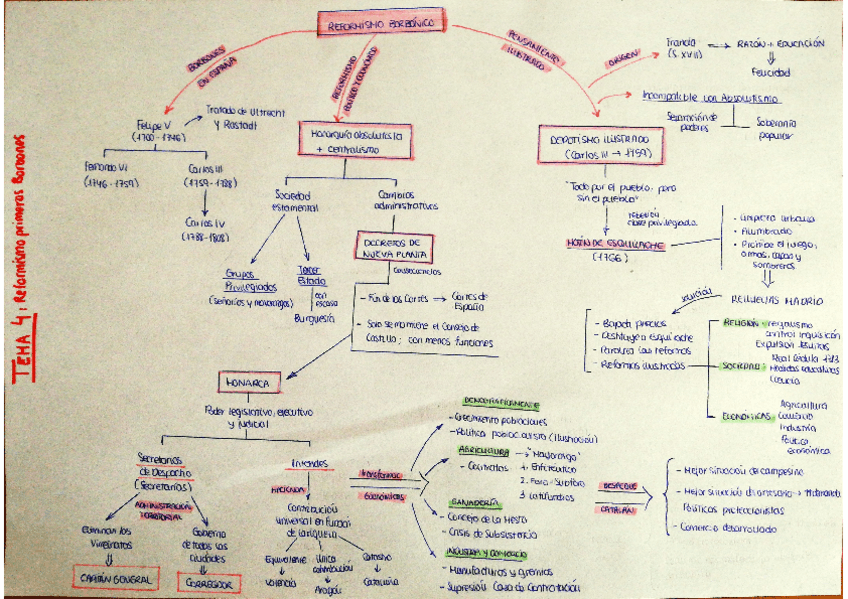 TEMA 4: Reformismo primeros Borbones
REFORMISMO BORBÓNICO
BORBONES
EN ESPAÑA
REFORMISMO
POLÍTICO Y ECONÓMICO
PENSAMIENTO
ILUSTRADO
Felipe V
(1700-1746)
Tratado de Utrecht
y Rastadt
Fernando VI
(1746-1759)
Carlos III
(1759-1788)
Carlos IV
(1788-1808)
Monarquía absolutista
+ centralismo
Sociedad
estamental
Cambios
administrativos
Grupos
Privilegiados
(señoríos y mayorazgos)
Tercer
Estado
con
escasa
Burguesía
DECRETOS DE
NUEVA PLANTA
consecuencias
- Fin de las Cortes → Cortes de
España
- Solo se mantiene el Consejo de
Castilla; con menos funciones
ORIGEN
Francia
(S. XVIII)
RAZÓN + EDUCACIÓN
Felicidad
Incompatible con Absolutismo
Separación de
poderes
Soberanía
popular
DESPOTISMO ILUSTRADO
(Carlos III → 1759)
"Todo por el pueblo, pero
sin el pueblo"
rebelión
clase privilegiada
MOTÍN DE ESQUILACHE
(1766)
- Limpieza urbana
- Alumbrado
- Prohíbe el juego,
armas, capas y
sombreros
REVUELTAS MADRID
solución
- Bajada precios
- Destituye a Esquilache
- Paraliza las reformas
- Reformas ilustradas
RELIGIÓN - regalismo
control Inquisición
Expulsión Jesuitas
SOCIEDAD - Real Cédula 1783
Medidas educativas
ECONÓMICAS -
Agricultura
Comercio
Industria
Política
económica
MONARCA
Poder legislativo, ejecutivo
y judicial
Secretarías
de Despacho
(Secretarios)
ADMINISTRACIÓN
TERRITORIAL
Eliminan los
Virreinatos
CAPITÁN GENERAL
Gobierno
de todas las
ciudades
CORREGIDOR
Intendentes
HACIENDA
Contribución
universal en función
de la riqueza
Equivalente
Valencia
Única
contribución
Aragón
Catastro
Cataluña
Transformac.
Económicas
DEMOGRÁFICAMENTE
- Crecimiento poblaciones
- Política poblacionista (ilustración)
AGRICULTURA → "Mayorazgo"
- Contratos
1. Enfiteútico
2. Foro-Subforo
3. Latifundios
GANADERÍA
- Concejo de La Mesta
- Crisis de Subsistencia
INDUSTRIA Y COMERCIO
- Manufacturas y gremios
- Supresión Casa de Contratación
DESPEGUE
CATALÁN
- Mejor situación de campesino
- Mejor situación de artesano → ↑ demanda
Políticas proteccionistas
- Comercio desarrollado